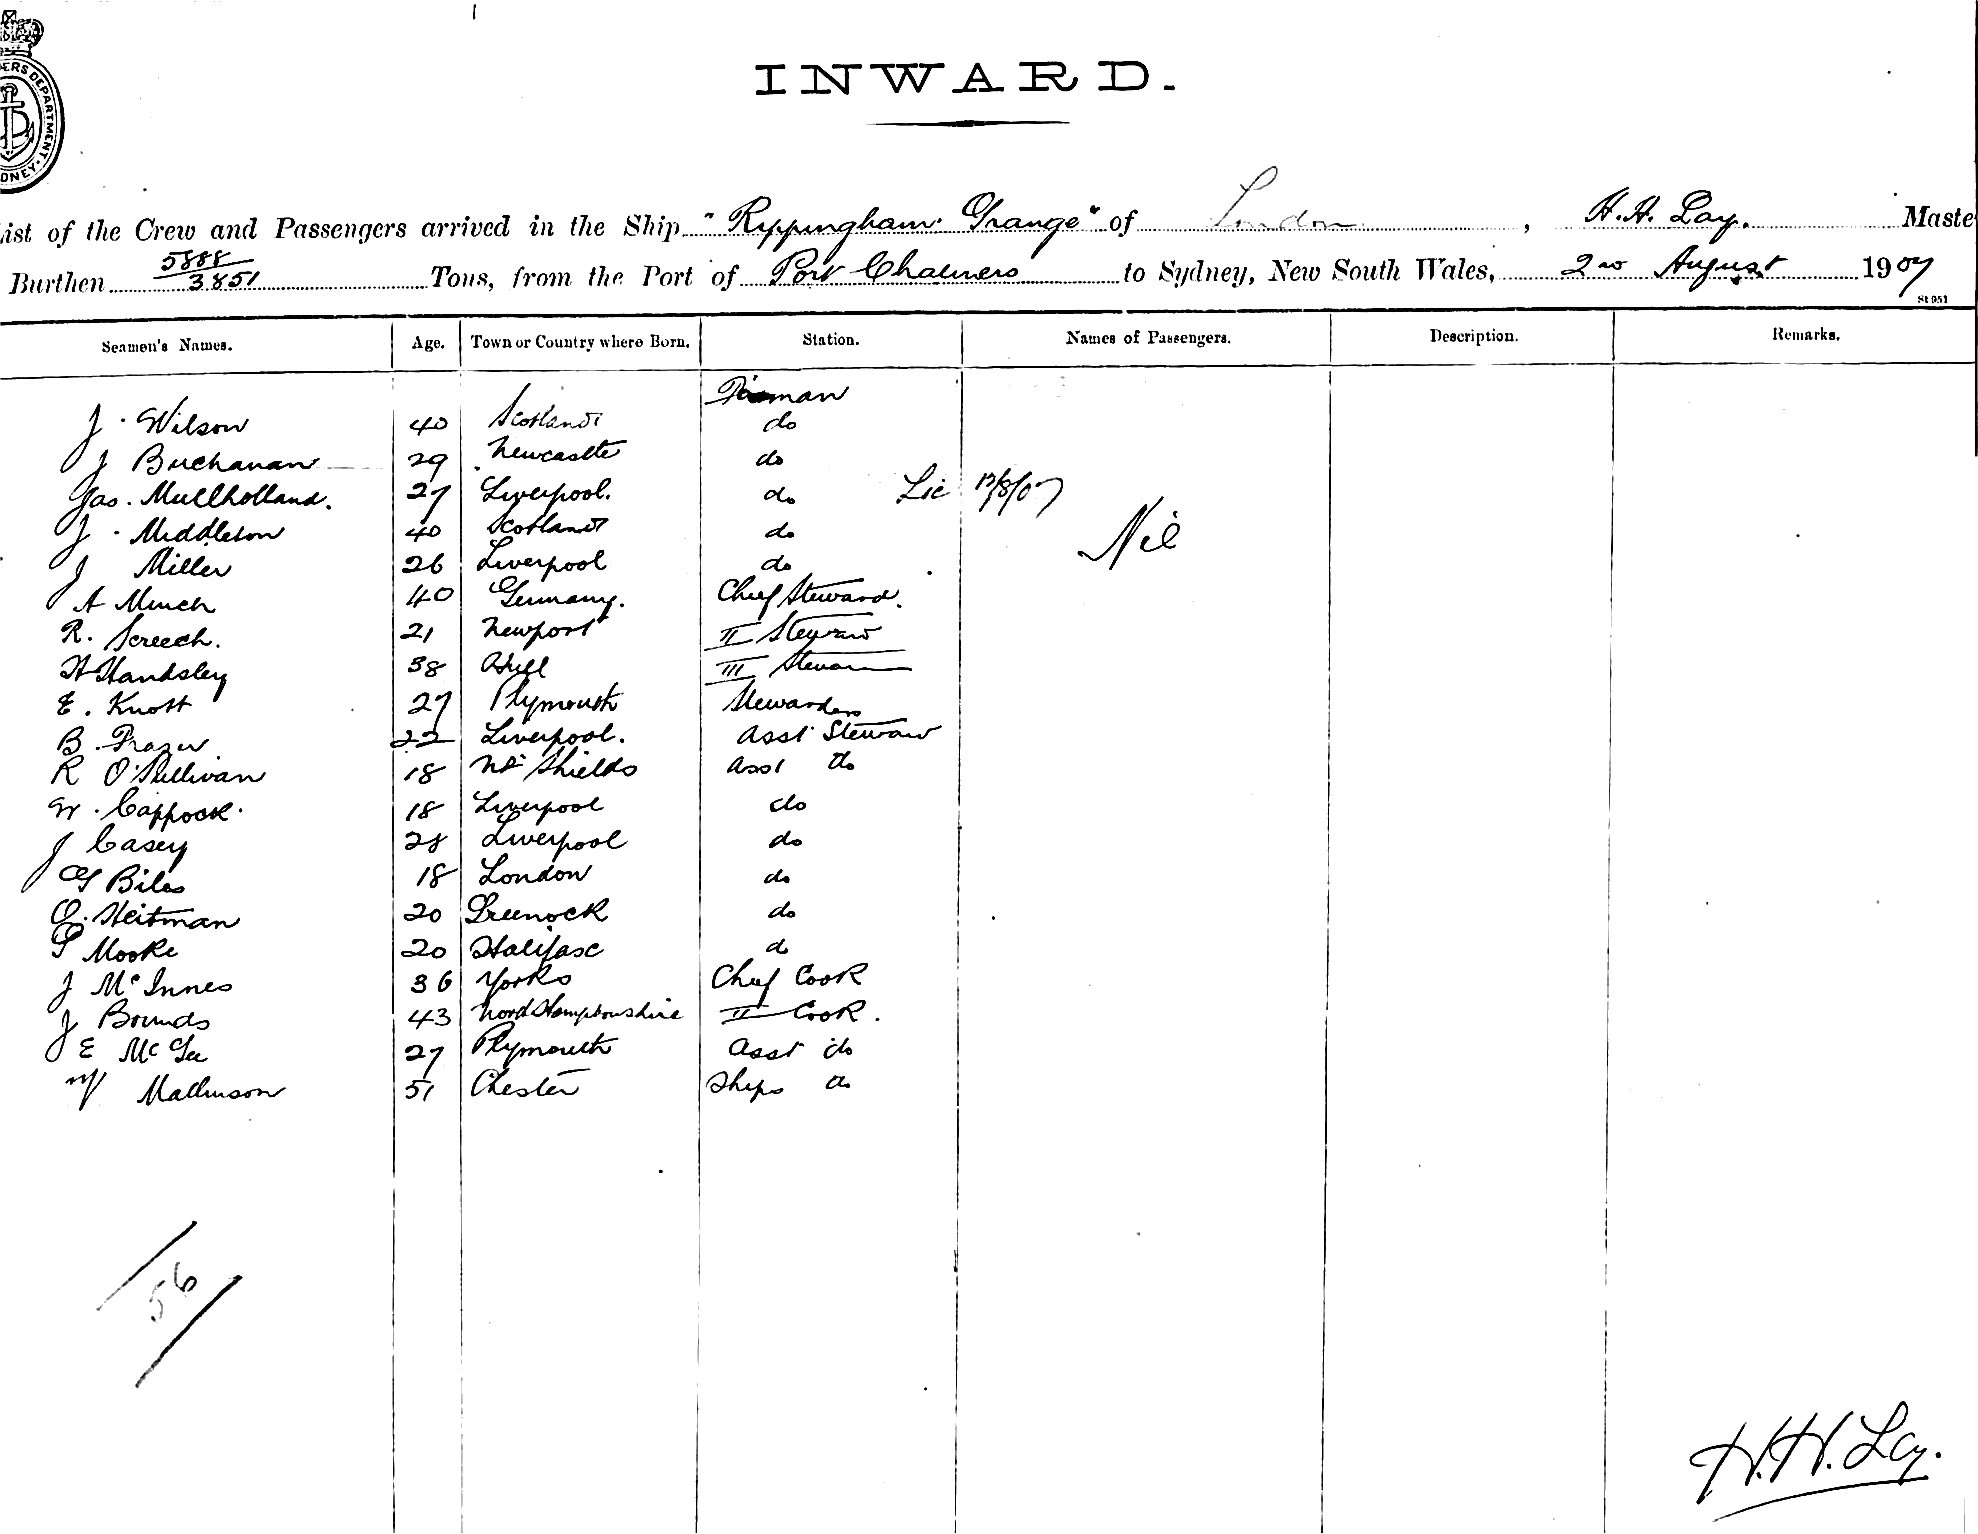 INWARD.
ist of the Crew and Passengers arrived in the Ship "Rippingham Grange" of London, H. H. Lay. Maste
Burthen 5888/3851 Tons, from the Port of Port Chalmers to Sydney, New South Wales, 2nd August 1907
St 951
Seamen's Names. Age. Town or Country where Born. Station. Names of Passengers. Description. Remarks.
Fireman
J. Wilson 40 Scotland do
J Buchanan 29 Newcastle do
Jas. Mullholland. 27 Liverpool. do Lic 12/8/07
J. Middleton 40 Scotland do Nil
J Miller 26 Liverpool do
A Minch 40 Germany. Chief Steward.
R. Screech. 21 Newport II Steward
H Handsley 38 Hull III Steward
E. Knott 27 Plymouth Stewardess
B. Frazer 22 Liverpool. Asst Steward
R O'Sullivan 18 No Shields Asst do
W. Cappock. 18 Liverpool do
J Casey 28 Liverpool do
G Biles 18 London do
O. Heitman 20 Greenock do
Moore 20 Halifax do
J McInnes 36 Yorks Chief Cook
J Bounds 43 Northamptonshire II Cook.
E McGee 27 Plymouth Asst do
W Mallinson 51 Chester Ships do
56
H. H. Lay.
ERS DEPARTMENT.
DNEY